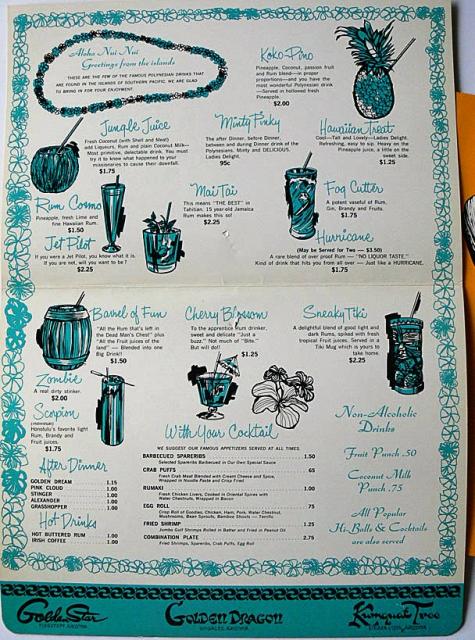 Aloha Nui Nui
Greetings from the islands
THESE ARE THE FEW OF FAMOUS POLYNESIAN DRINKS THAT
ARE FOUND IN THE ISLANDS OF SOUTHERN PACIFIC. WE ARE GLAD
TO BRING IN FOR YOUR ENJOYMENT.
Koko-Pino
Pineapple, Coconut, passion fruit
and Rum blend—in proper
proportions—and you have the
most wonderful Polynesian drink
—Served in hollowed fresh
Pineapple.
$2.00
Jungle Juice
Fresh Coconut (with Shell and Meat)
add Liqueurs, Rum and plain Coconut Milk—
Most primitive, delectable drink. You must
try it to know what happened to your
missionaries to cause their downfall.
$1.75
Minty Pinky
The after Dinner, before Dinner,
between and during Dinner drink of the
Polynesians. Minty and DELICIOUS.
Ladies Delight.
95c
Hawaiian Treat
Cool—Tall and Lovely—Ladies Delight.
Refreshing, easy to sip. Heavy on the
Pineapple juice, a little on the
sweet side.
$1.25
Rum Cosmo
Pineapple, fresh Lime and
fine Hawaiian Rum.
$1.50
Mai Tai
This means "THE BEST" in
Tahitian. 15 year old Jamaica
Rum makes this so!
$2.25
Fog Cutter
A potent vaseful of Rum,
Gin, Brandy and Fruits.
$1.75
Jet Pilot
If you were a Jet Pilot, you know what it is.
If you are not, will you want to be?
$2.25
Hurricane
(May be Served for Two — $3.50)
A rare blend of over proof Rum — "NO LIQUOR TASTE."
Kind of drink that hits you from all over — Just like a HURRICANE.
$1.75
Barrel of Fun
"All the Rum that's left in
the Dead Man's Chest" plus
"All the Fruit juices of the
land" — Blended into one
Big Drink!!
$1.50
Cherry Blossom
To the apprentice Rum drinker,
sweet and delicate "Just a
buzz." Not much of "Bite."
But will do!!
$1.25
Sneaky Tiki
A delightful blend of good light and
dark Rums, spiked with fresh
tropical Fruit juices. Served in a
Tiki Mug which is yours to
take home.
$2.25
Zombie
A real dirty stinker.
$2.00
Scorpion
Honolulu's favorite light
Rum, Brandy and
Fruit juices.
$1.75
After Dinner
GOLDEN DREAM 1.15
PINK CLOUD 1.00
STINGER 1.00
ALEXANDER 1.00
GRASSHOPPER 1.00
Hot Drinks
HOT BUTTERED RUM 1.00
IRISH COFFEE 1.00
With Your Cocktail
WE SUGGEST OUR FAMOUS APPETIZERS SERVED AT ALL TIMES.
BARBECUED SPARERIBS 1.50
Selected Spareribs Barbecued in Our Own Special Sauce
CRAB PUFFS 65
Fresh Crab Meat Blended with Cream Cheese and Spice,
Wrapped in Noodle Paste and Crisp Fried
RUMAKI 1.00
Fresh Chicken Livers, Cooked in Oriental Spices with
Water Chestnuts, Wrapped in Bacon
EGG ROLL 75
Crisp Roll of Goodies, Chicken, Ham, Pork, Water Chestnut,
Mushrooms, Bean Sprouts, Bamboo Shoots —
FRIED SHRIMP 1.25
Jumbo Gulf Shrimps Rolled in Batter and Fried in Peanut Oil
COMBINATION PLATE 2.75
Fried Shrimps, Spareribs, Crab Puffs, Egg Roll
Non-Alcoholic
Drinks
Fruit Punch .50
Coconut Milk
Punch .75
All Popular
Hi-Balls & Cocktails
are also served
Golden Star
FLAGSTAFF, ARIZONA
GOLDEN DRAGON
NOGALES, ARIZONA
Kumquat Tree
ARIZONA